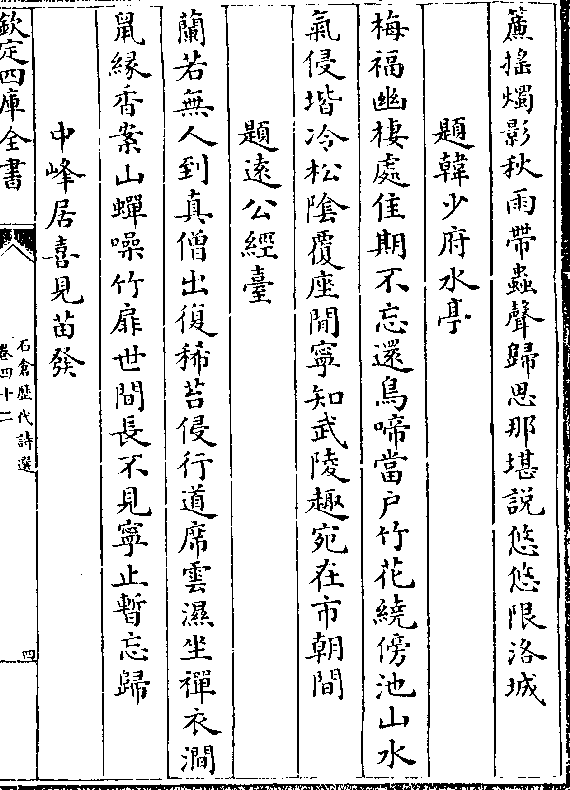 簾搖燭影秋雨帶蟲聲歸思那堪說悠悠限洛城
題韓少府水亭
梅福幽棲處佳期不忘還鳥啼當戶竹花繞傍池山水
氣侵堦冷松陰覆座閒寧知武陵趣宛在市朝間
題遠公經臺
蘭若無人到真僧出復稀苔侵行道席雲濕坐禪衣澗
鼠緣香案山蟬噪竹扉世間長不見寧止暫忘歸
中峰居喜見苗發
欽定四庫全書
石倉歷代詩選
卷四十二
四